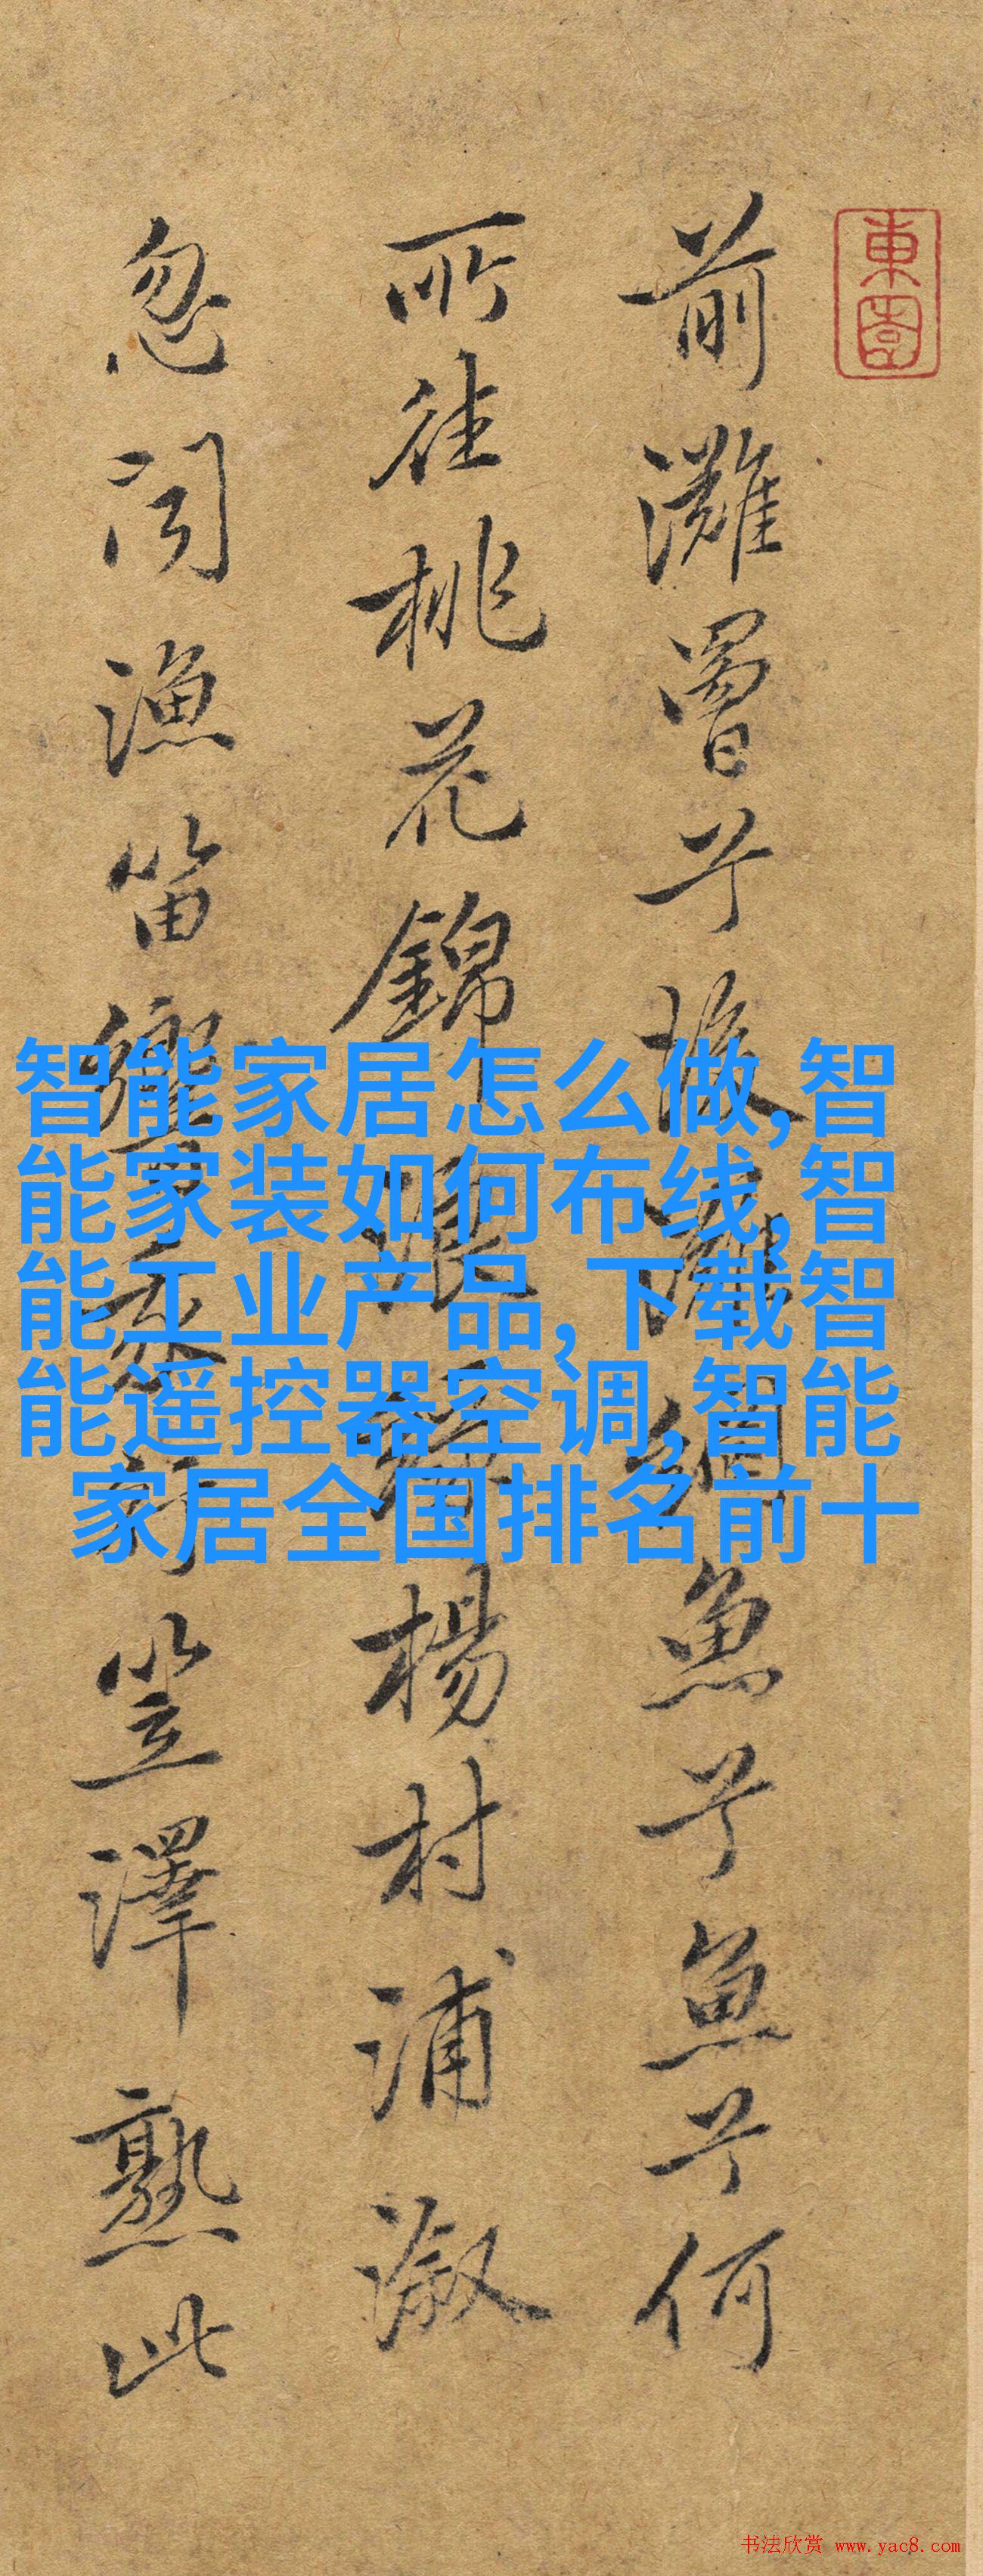 東園
前灘罾子撥灘細魚子魚子何
所往桃花錦浪綠楊村浦溆
忽聞漁笛響
笠澤熟此
智能家居怎么做,智
能家装如何布线,智
能工业产品,下载智
能遥控器空调,智能
家居全国排名前十
书法欣赏 www.yac8.com